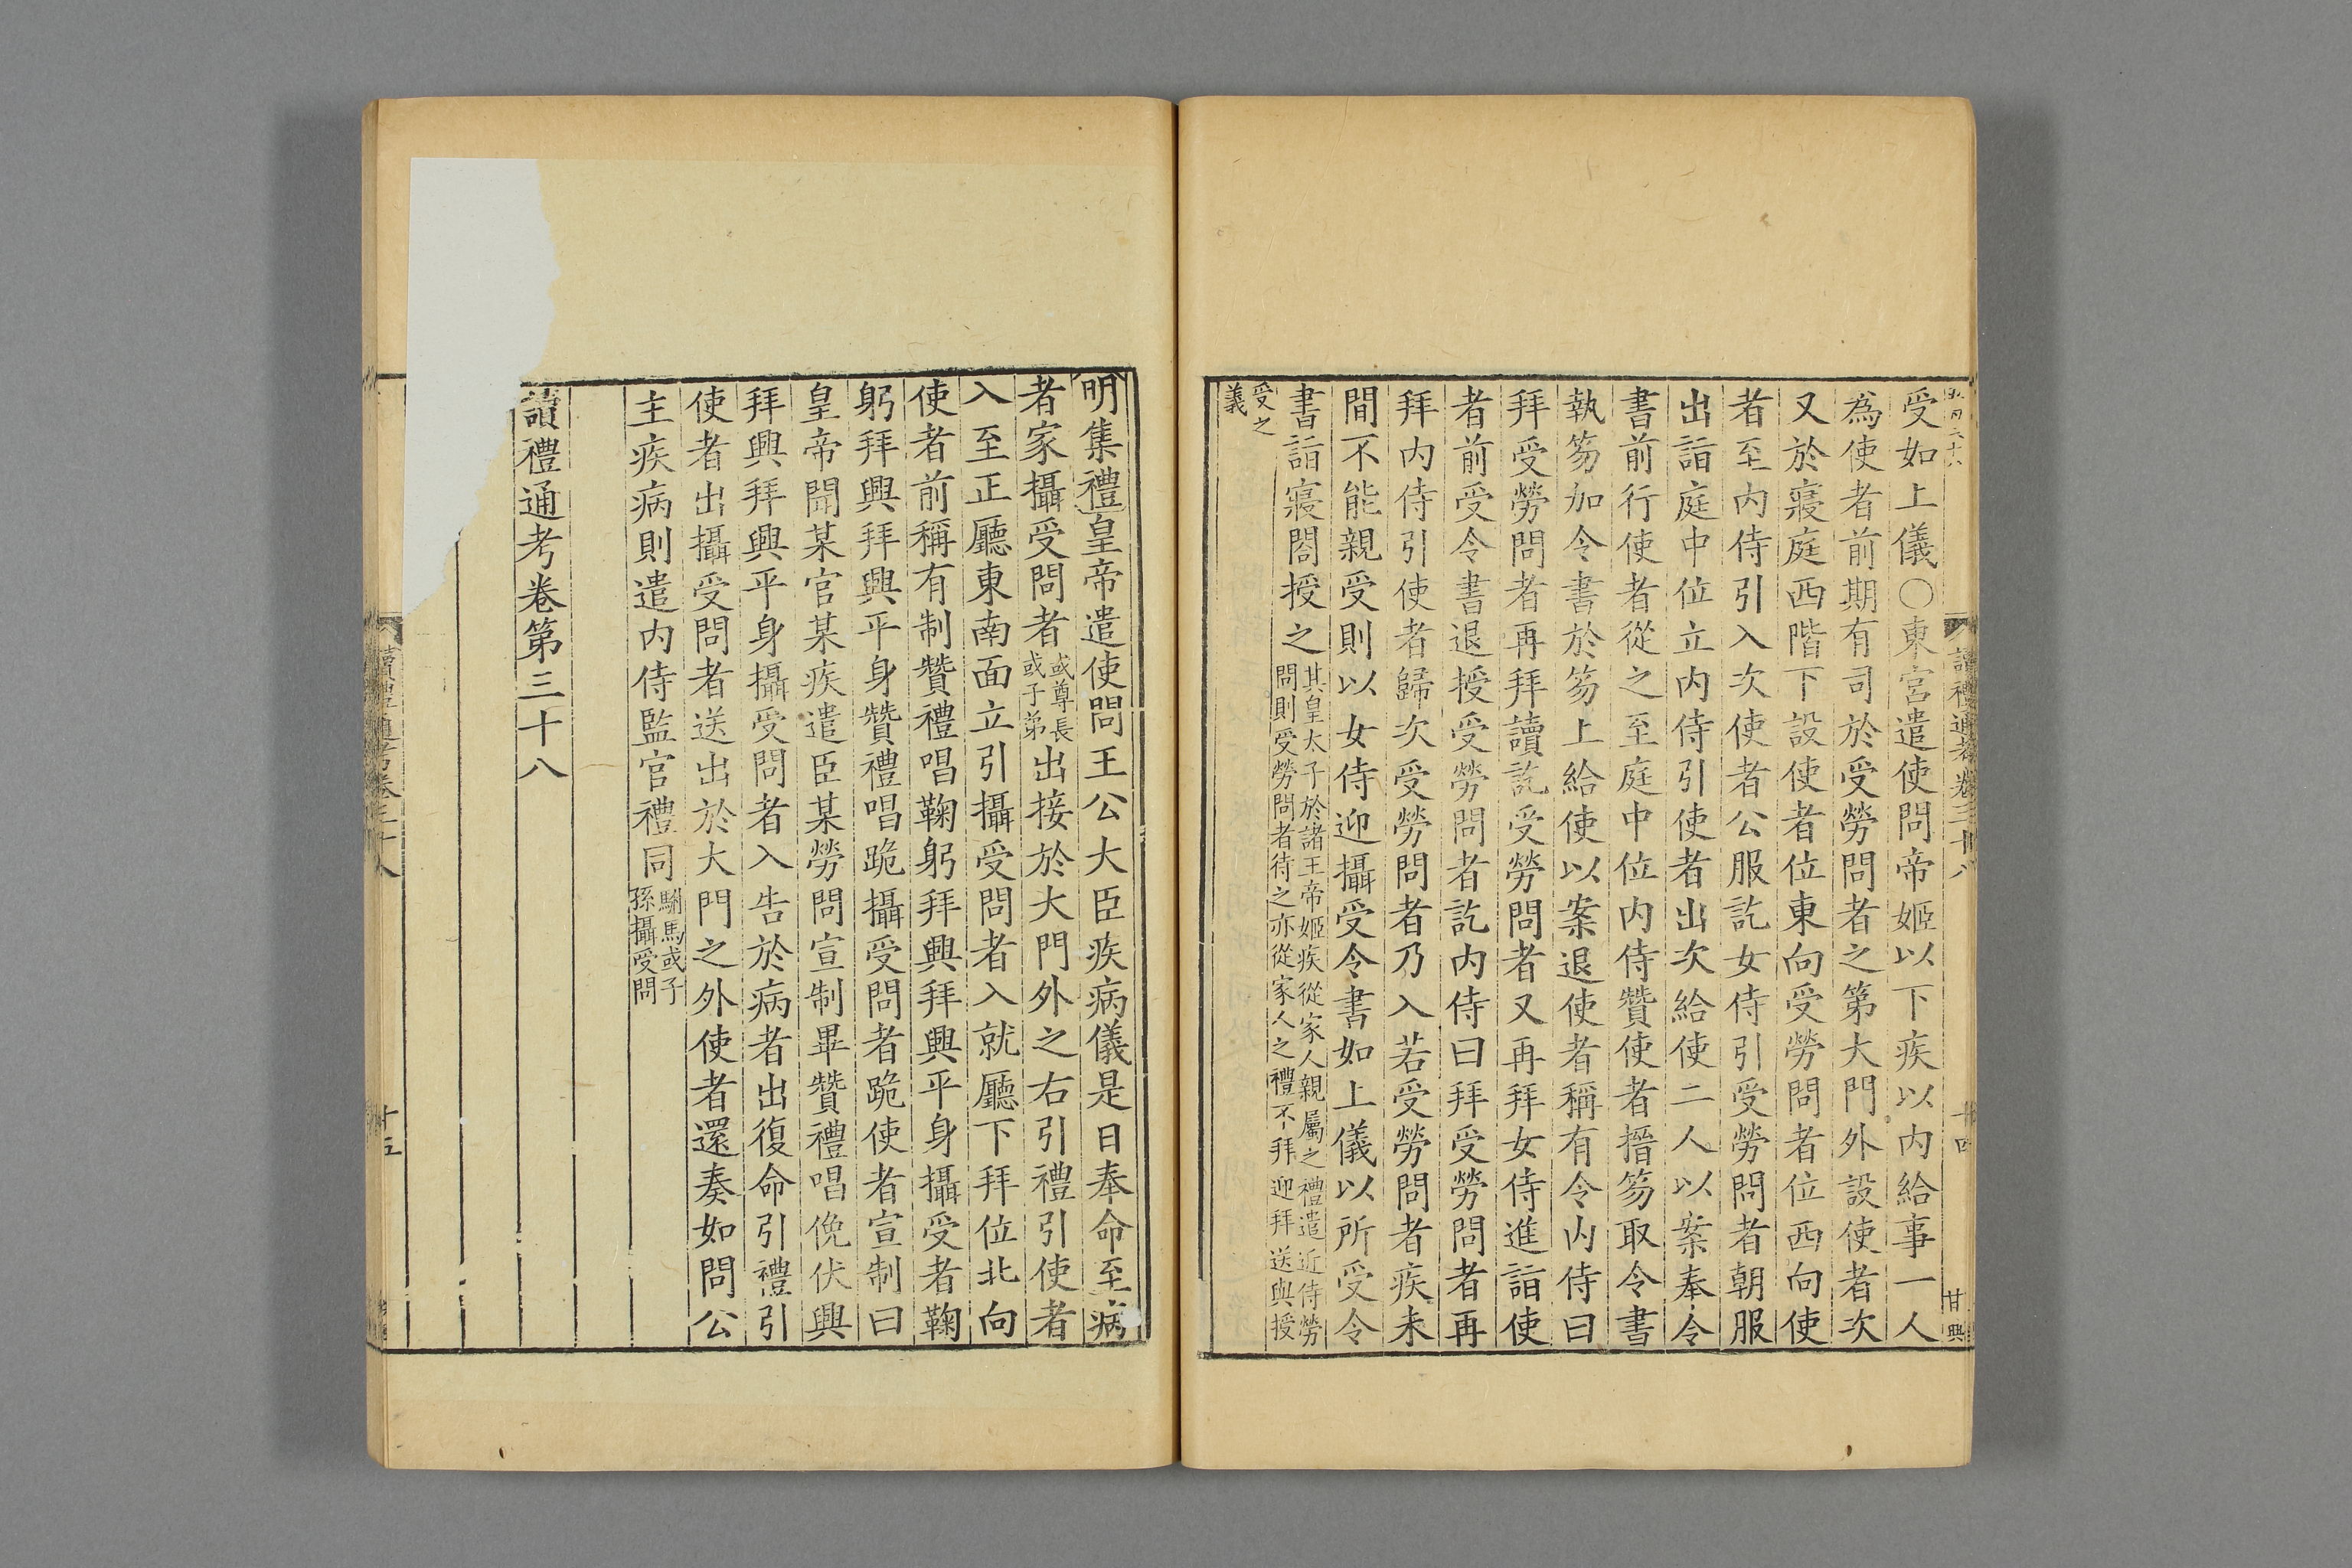 受如上儀○東宮遣使問帝姬以下疾以内給事一人
為使者前期有司於受勞問者之第大門外設使者次
又於寢庭西階下設使者位東向受勞問者位西向使
者至内侍引入次使者公服訖女侍引受勞問者朝服
出詣庭中位立内侍引使者出次給使二人以案奉令
書前行使者從之至庭中位内侍贊使者搢笏取令書
執笏加令書於笏上給使以案退使者稱有令内侍曰
拜受勞問者再拜讀訖受勞問者又再拜女侍進詣使
者前受令書退授受勞問者訖内侍曰拜受勞問者再
拜内侍引使者歸次受勞問者乃入若受勞問者疾未
間不能親受則以女侍迎攝受令書如上儀以所受令
書詣寢閤授之其皇太子於諸王帝姬疾從家人親屬之禮遣近侍勞
問則受勞問者待之亦從家人之禮不拜迎拜送與授
受之
義
讀禮通考卷三十八
十四
甘典
明集禮皇帝遣使問王公大臣疾病儀是日奉命至病
者家攝受問者或尊長或子弟出接於大門外之右引禮引使者
入至正廳東南面立引攝受問者入就廳下拜位北向
使者前稱有制贊禮唱鞠躬拜興拜興平身攝受者鞠
躬拜興拜興平身贊禮唱跪攝受問者跪使者宣制曰
皇帝聞某官某疾遣臣某勞問宣制畢贊禮唱俛伏興
拜興拜興平身攝受問者入告於病者出復命引禮引
使者出攝受問者送出於大門之外使者還奏如問公
主疾病則遣内侍監官禮同駙馬或子孫攝受問
讀禮通考卷第三十八
讀禮通考卷三十八
十五